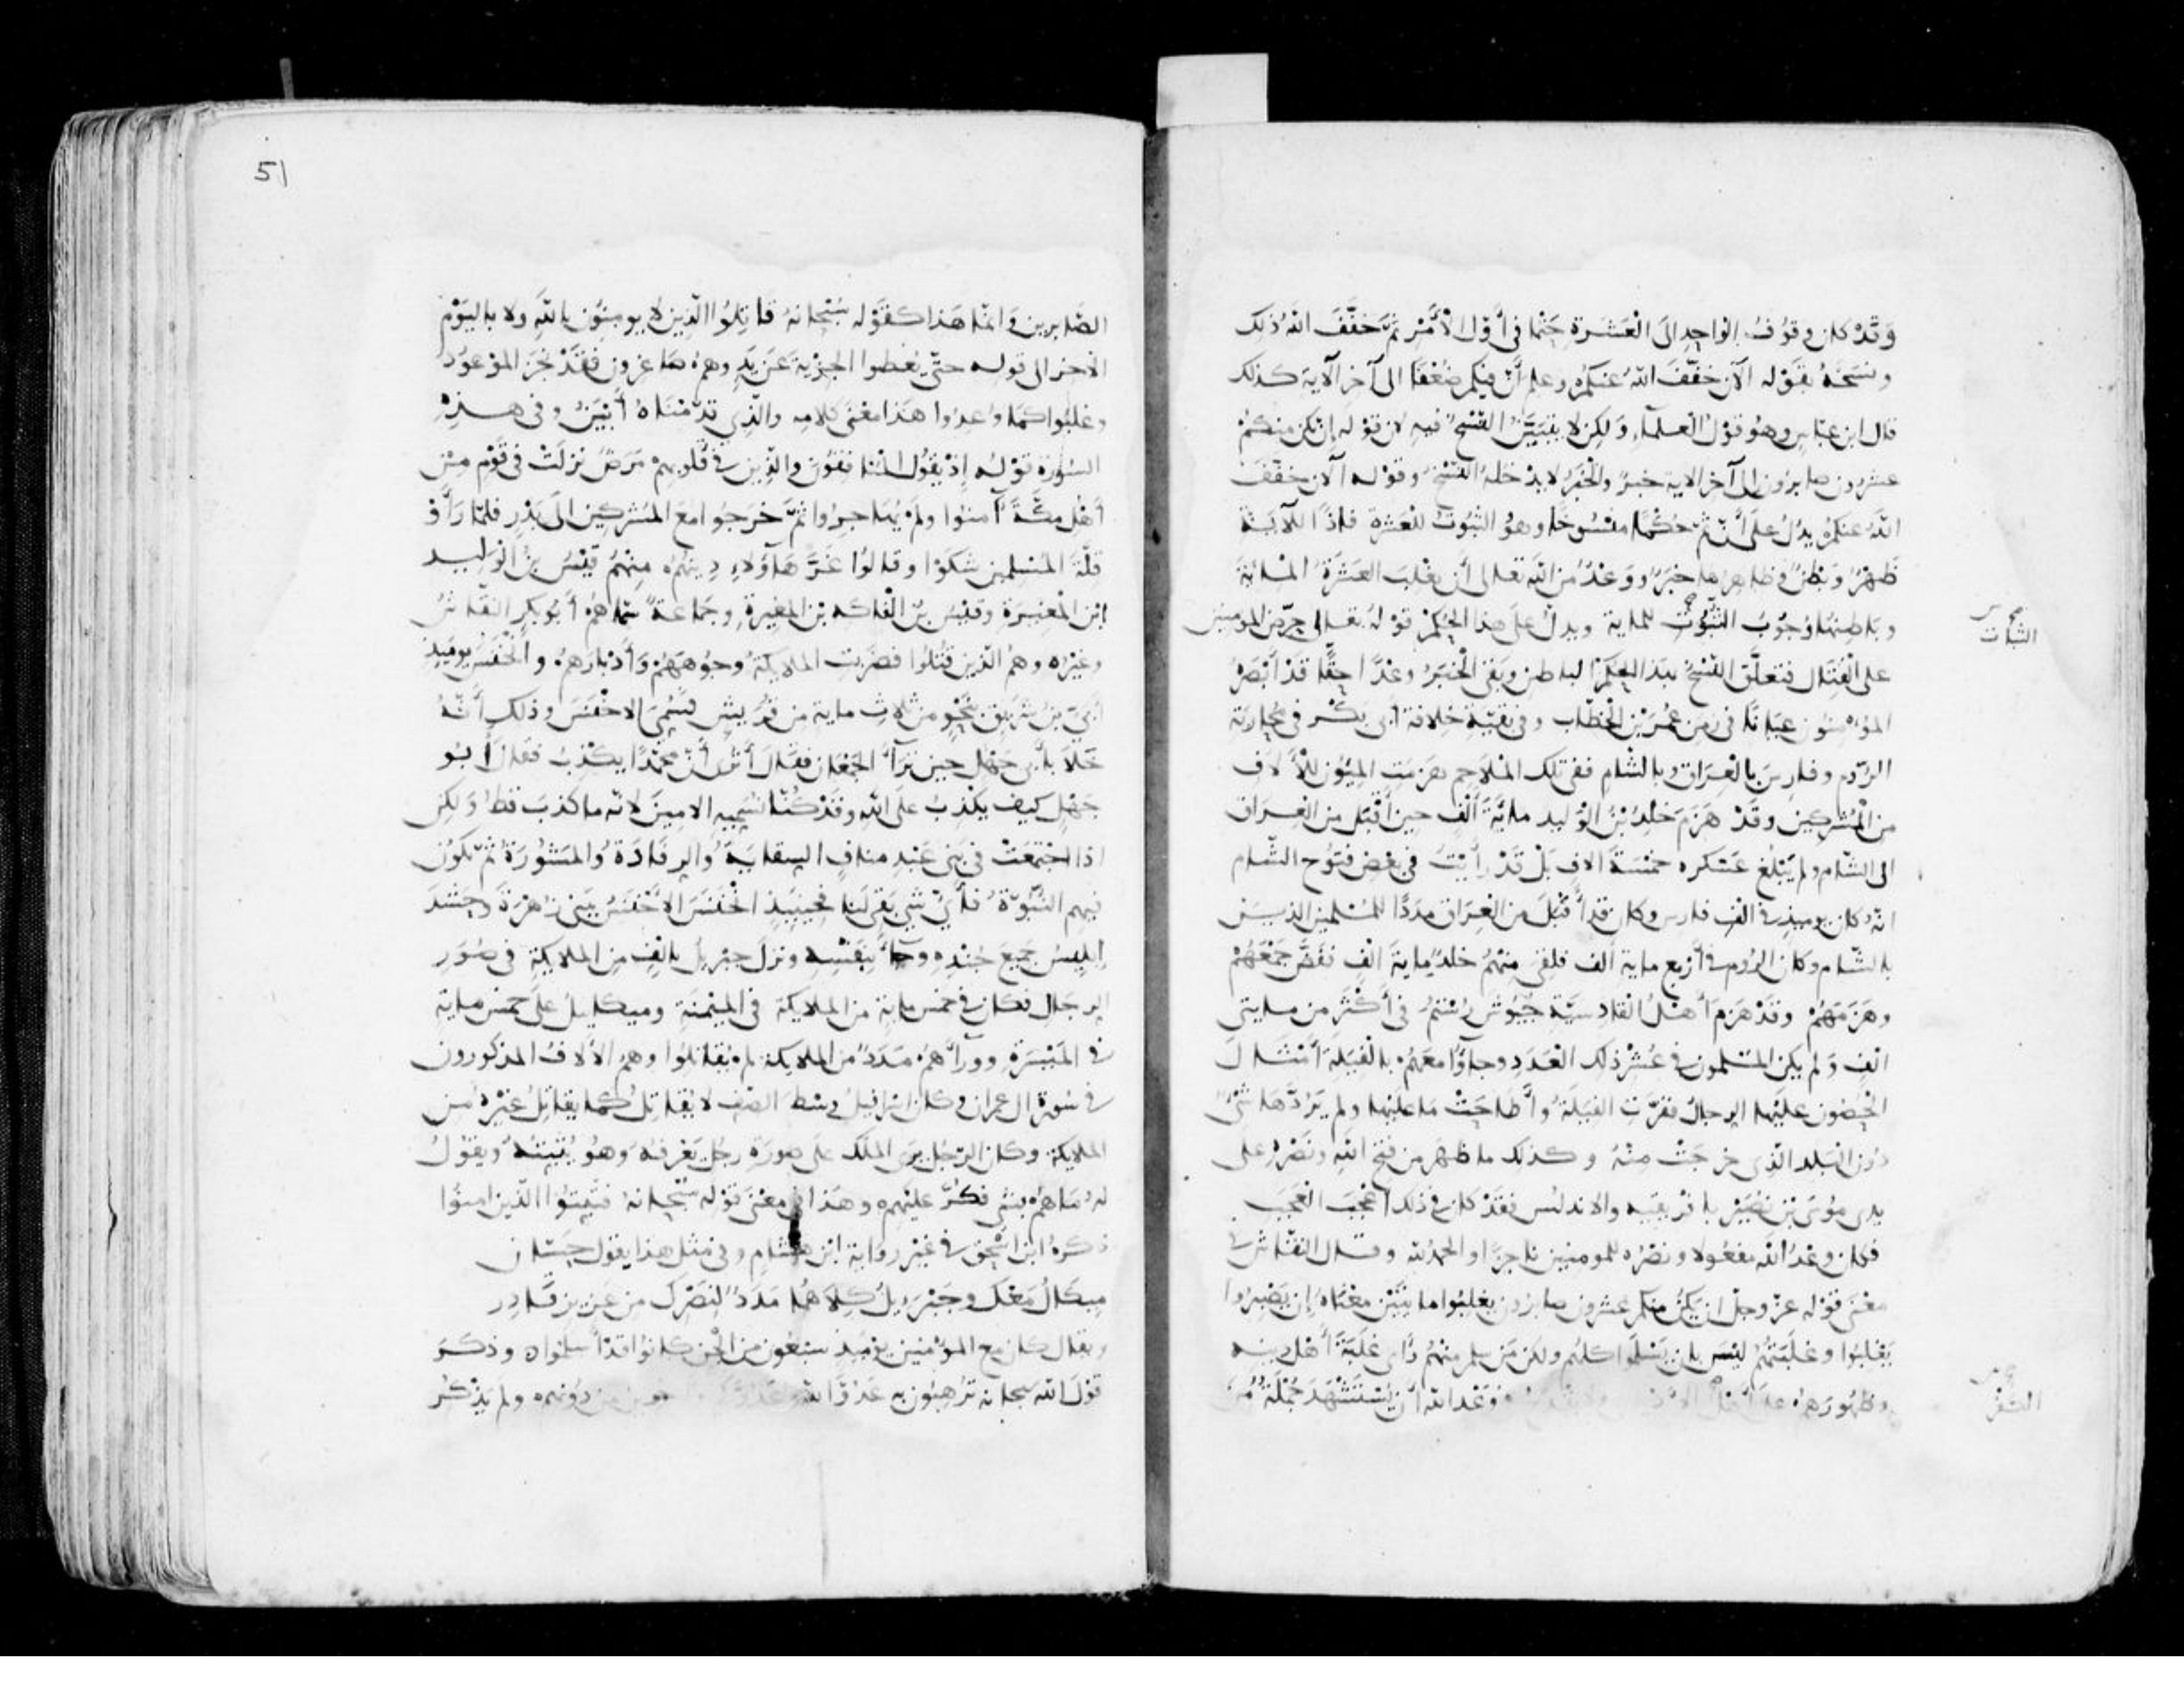 وَقَدْ كان وقوُفُ الوَاحِدِ الىَ الْعَشَرَةِ حَتْمًا فى أَوّل الْأَمْر ثمَّ خَفَّفَ اللهُ ذلِك
ونسَخَهُ بقَوْله الآن خَفَّفَ اللهُ عنكمُ وعلم أنّ فيكم ضُعْفًا الى آخر الآية كذلك
قال ابن عبّاس وهُو قوْل العلماء ولكن لا يتبيَّن النّسْخُ فيه لان قوْله إن يكن منكمْ
عشرون صابرُون الى آخر الاية خبرٌ والْخبَرُ لا يدْخلهُ النّسْخُ وقوْله الآن خفّفَ
اللهُ عنكمُ يدُلُّ علَى أنّ ثَمّ حُكْمًا منسُوخًا وهُو الثّبُوتُ للعَشرة فإذًا للآية
ظَهْرٌ وَبَطْنٌ فظاهرُها خبَرٌ ووَعْدٌ من الله تعالى أن يغْلبَ العَشَرَةُ المايةَ
وبَاطِنهَا وُجُوبُ الثّبُوت للماية ويدلّ علَى هذا الحُكمْ قوْلهُ تعالى حرّض المومنين
الثبات
على الْقتَال فتعلّق النّسْخُ بهذا الحكم الباطن وبقى الْخبَرُ وعْدًا حقًّا قدْ أَبْصَرهُ
المؤمِنُون عيَانًا فى زمن عُمَر بْن الْخطّاب وفى بقيّة خِلافة أبى بكْر فى محارَبة
الرّوم وفارسَ بالعِرَاق وبالشّامِ ففى تلك المَلاحِم هزمَتِ المِيُون للآلاف
من الْمشركين وقَدْ هَزَمَ خلدُ بْنُ الوَليد مايَةَ ألْف حين أقْبَل من العِراق
الى الشّام ولم يَبْلُغ عَسْكره خمْسَةَ الاف بَلْ قدْ رأيْتُ فى بعْض فتُوح الشّام
انّه كان يوميذ فى الْف فارس وكان قد أَقْبَل من العِراق مدَدًا للمُسْلمين الذين
بالشّام وكان الرّوم فى أرْبع ماية ألف فلقى منهُم خلدٌ مايةَ الْف ففَضَّ جَمْعَهُمْ
وهَزَمَهُمْ وقَدْ هَزمَ أَهْلُ القادسيّة جُيُوشَ رُسْتُم فى أَكْثَر من مايتى
الْف وَلم يكن المسْلمون فى عُشْر ذلك العَدَد وجاؤُا معَهُم بالْفيَلة أمْثَالَ
الْحُصُون عليْها الرجال ففرّت الفيَلَةُ وأَطاحَتْ مَا علَيْها ولم يَرُدّها شىْءٌ
دُون الْبَلد الذّى خرجَتْ منْهُ وكذلك ما ظهَر من فتْح الله ونَصْرِه على
يدى مُوسَى بْن نُصَيْر بإفْريقيّه والاندلس فقَدْ كان فى ذلك أعْجَبَ العجَب
فكان وعْدُ الله مفعُولا ونصْرُه للمومنين ناجزًا والحمْدُ لله وقال النقّاش فى
معْنى قوْله عزّ وجلّ ان يكنْ منكم عشرون صابرُون يغلبُوا ما يبَيّن معْناهُ إن يَصْبرُوا
يَغْلبُوا وغلَبَتهُمْ ليْسَ بان يَسْلمُوا كلهُم ولكن مَن سلم منهُم رأى غَلَبَةَ أهْل دينه
وظهُورَهمُ على أهْل
ووَعَد الله أَنْ يُسْتَشْهَدَ جُمْلةٌ مِنَ
51
الصّابرين وَامّا هَذا كقَوْله سُبْحانهُ قاتِلُوا الذّين لا يومنُون باللهِ ولا باليَوْم
الآخر الى قوله حتّى يُعْطوا الجِزْية عَن يَدٍ وهمُ صَاغرون فقدْ نجزَ الموْعُودُ
وغلبُوا كمَا وُعدُوا هَذا معْنَى كلامه والذّى قدّمْنَاهُ أَبْيَنُ وفى هذِه
السّورَة قوْلهُ إذْ يقُولُ المنَافقُون والذّين فى قُلوبهمْ مَرَضٌ نزلَتْ فى قَوْمٍ مِن
أَهْل مكّةَ آمنوُا ولمْ يُهَاجرُوا ثمَّ خَرجُوا معَ المشْركين الى بَدْرٍ فلمّا رَأَوْا
قلّةَ المُسْلمين شكّوْا وقالُوا غَرَّ هَاؤُلاءِ دِينُهُم مِنْهُمْ قيْسُ بْنُ الوَليد
ابْن المُغيرَة وقيْسُ بْن الْفاكه بْن المغيرةِ وجَمَاعةٌ سمّاهمُ أبُو بكرٍ النقّاشُ
وغيْرُه وهمُ الذّين قُتلُوا فضرَبت الملايكةُ وجُوههُمْ وأَدْبارَهمُ والْخَنَس يوميذٍ
أُبَىّ بنُ شَريق بنَحْوٍ من ثلاث ماية من قُرَيش فسُمّى الاخْنَسَ وذلك أنّهُ
خَلا بأبى جَهْلٍ حين ترآءَا الجَمْعَان فقالَ أَتُرَى أنّ محمّدًا يكْذِبُ فقالَ أَبُو
جَهْلٍ كيف يكْذبُ علَى الله وقَدْ كُنّا نسَمّيه الامينَ لانّه ما كذَبَ قطُّ وَلكن
اذا اجْتمَعَتْ فى بَنى عَبْدِ منافٍ السِقايَةُ والرِفَادَةُ والمَشُورَةُ ثمّ تكُونُ
فيهم النّبُوّةُ فأَىُّ شىْءٍ بقىَ لَنا فحينيذٍ انْخنَسَ الاخْنَسُ ببَنى زهْرَةَ وحَشَدَ
إبليسُ جَميعَ جُنْدِه وجآءَ بنَفْسه ونزلَ جبْريلُ بالْف من الملايكة فى صُوَرِ
الرجَال فكان فى خمْس ماية من الملايكة فى المَيْمَنَةِ وميكايلُ على خمْس ماية
فى المَيْسَرَةِ وورآءهُم مَدَدٌ من الملايكة لم يُقاتلُوا وهمُ الآلافُ المذكورون
فى سُورة ال عمران وكان اسْرافيلُ وسْط الصّف لا يُقاتلُ كما يقاتلُ غيْرُه من
الملايكة وكان الرّجُل يرى المَلَك علَى صورَةِ رجُلٍ يَعْرفهُ وَهوُ يُثبّتُه ويقوُلُ
لهُ مَا همُ بشىْءٍ فكُرَّ عليْهم وهَذا فى معْنَى قوْله سُبْحانهُ فثبّتوُا الذّين امنوُا
ذكرهُ ابن اسْحق فى غيْر رواية ابْن هشام وفى مثل هذا يقول حَسّان
ميكَالُ مَعْك وجَبْرَييلُ كِلاهُما مَدَدٌ لنَصْرك من عَزيزٍ قادِر
ويقال كان مع المؤمنين يوْميذ سبْعُون من الْجنّ كانُوا قدْ أسْلموا وذكَرَ
قوْلَ الله سبحانه تُرْهبُون به عَدُوّ الله وعَدُوّكم
من دُونهم ولم يَذْكُر